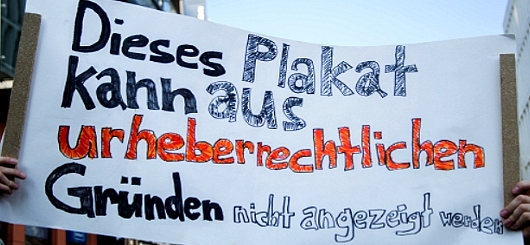 Dieses Plakat
kann aus
urheberrechtlichen
Gründen nicht angezeigt werden